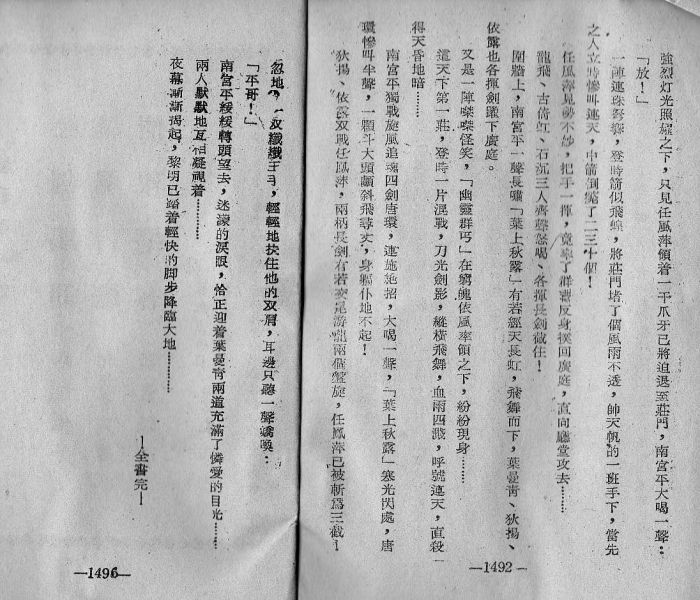 強烈灯光照耀之下，只見任風萍領着一干爪牙已將迫退至莊門，南宮平大喝一聲：
「放！」
一陣連珠弩響，登時箭似飛蝗，將莊門堵了個風雨不透，帥天帆的一班手下，當先
之人立時慘叫連天，中箭倒斃了二三十個！
任風萍見勢不妙，把手一揮，竟率了群賊反身撲回廣庭，直向廳堂攻去………
龍飛、古倚虹、石沉三人齊聲怒喝、各揮長劍截住！
圍牆上，南宮平一聲長嘯「葉上秋露」有若經天長虹，飛舞而下，葉曼靑、狄揚、
依露也各揮劍躍下廣庭。
又是一陣桀桀怪笑，「幽靈群丐」在窮魄依風率領之下，紛紛現身………
這天下第一莊，登時一片混戰，刀光劍影，縱橫飛舞，血雨四濺，呼號連天，直殺
得天昏地暗………
南宮平獨戰旋風追魂四劍唐環，連施絶招，大喝一聲，「葉上秋露」寒光閃處，唐
環慘叫半聲，一顆斗大頭顱斜飛尋丈，身軀仆地不起！
狄揚、依露双戰任風萍，兩柄長劍有若交尾游龍兩個盤旋，任風萍已被斬爲三截！
—1492—
忽地，一双纖纖玉手，輕輕地扶住他的双肩，耳邊只聽一聲嬌喚：
「平哥！」
南宮平緩緩轉頭望去，迷濛的淚眼，恰正迎着葉曼靑兩道充滿了憐愛的目光………
兩人默默地互相凝視着………
夜幕漸漸揭起，黎明已踏着輕快的脚步降臨大地………
—全書完—
—1496—